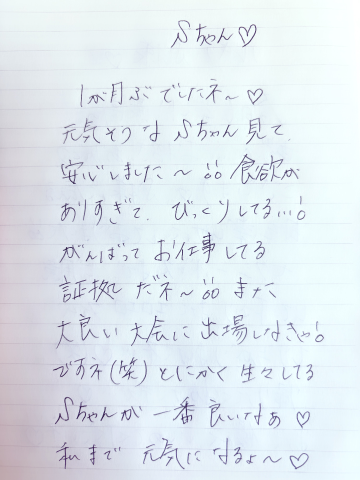 Sちゃん♡
1か月ぶりでしたネ〜♡
元気そうなSちゃん見て、
安心しました〜!! 食欲が
ありすぎて、びっくりしてる…!
がんばってお仕事してる
証拠だネ〜!! また
大食い大会に出場しなきゃ!
ですネ(笑)とにかく生々してる
Sちゃんが一番良いなぁ♡
私まで元気になるょ〜♡